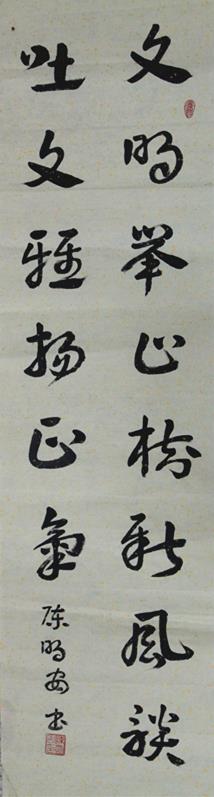 文明举止树新风谈
吐文雅扬正气
陈明安书